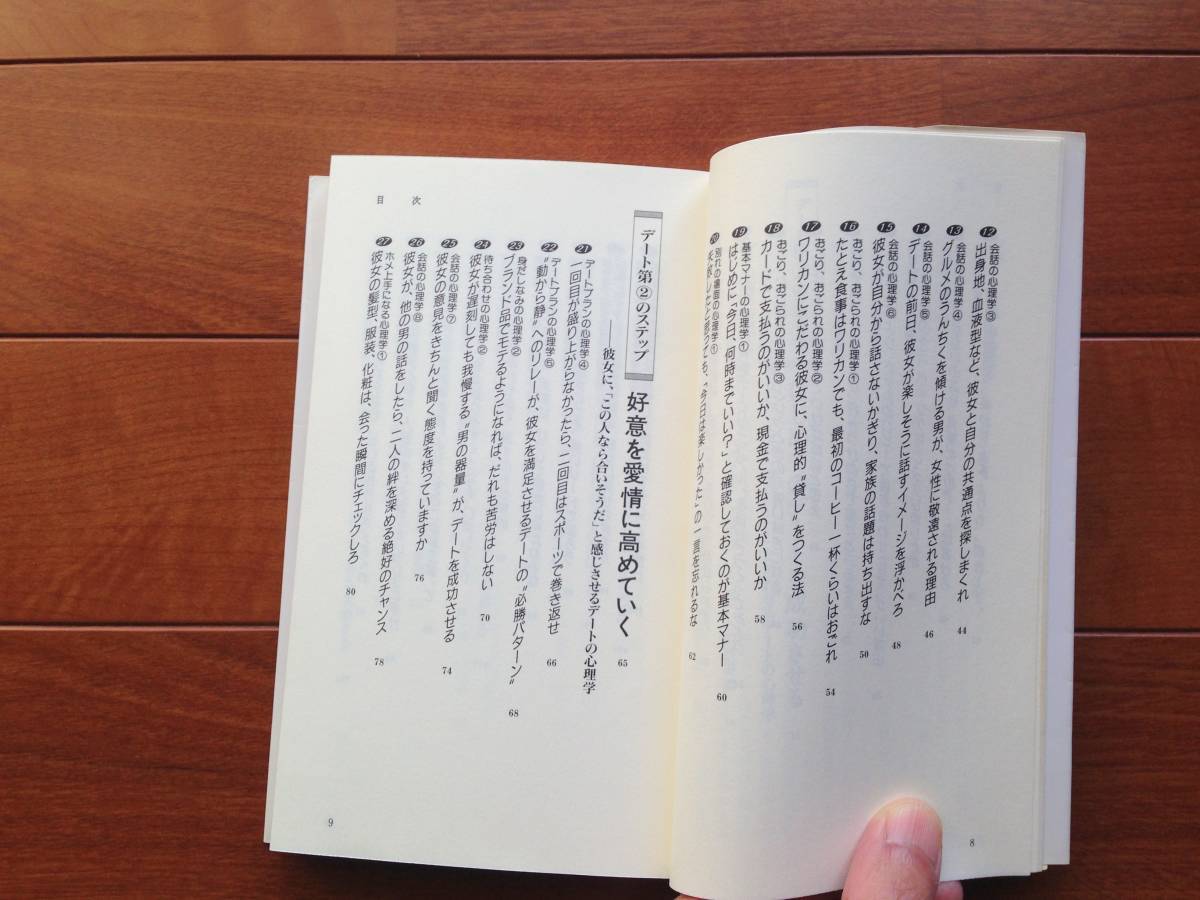 ⑫会話の心理学③
出身地、血液型など、彼女と自分の共通点を探しまくれ
44
⑬会話の心理学④
グルメのうんちくを傾ける男が、女性に敬遠される理由
46
⑭会話の心理学⑤
デートの前日、彼女が楽しそうに話すイメージを浮かべろ
48
⑮会話の心理学⑥
彼女が自分から話さないかぎり、家族の話題は持ち出すな
50
⑯おごり、おごられの心理学①
たとえ食事はワリカンでも、最初のコーヒー一杯くらいはおごれ
54
⑰おごり、おごられの心理学②
ワリカンにこだわる彼女に、心理的〝貸し〟をつくる法
56
⑱おごり、おごられの心理学③
カードで支払うのがいいか、現金で支払うのがいいか
58
⑲基本マナーの心理学①
はじめに「今日、何時までいい?」と確認しておくのが基本マナー
60
⑳別れの場面の心理学①
失敗したと思っても、「今日は楽しかった」の一言を忘れるな
62
8
デート第②のステップ
好意を愛情に高めていく
65
――彼女に、「この人なら合いそうだ」と感じさせるデートの心理学
㉑デートプランの心理学④
一回目が盛り上がらなかったら、二回目はスポーツで巻き返せ
66
㉒デートプランの心理学⑤
〝動から静〟へのリレーが、彼女を満足させるデートの〝必勝パターン〟
68
㉓身だしなみの心理学②
ブランド品でモテるようになれば、だれも苦労はしない
70
㉔待ち合わせの心理学②
彼女が遅刻しても我慢する〝男の器量〟が、デートを成功させる
74
㉕会話の心理学⑦
彼女の意見をきちんと聞く態度を持っていますか
76
㉖会話の心理学⑧
彼女が、他の男の話をしたら、二人の絆を深める絶好のチャンス
78
㉗ホメ上手になる心理学①
彼女の髪型、服装、化粧は、会った瞬間にチェックしろ
80
目次
9